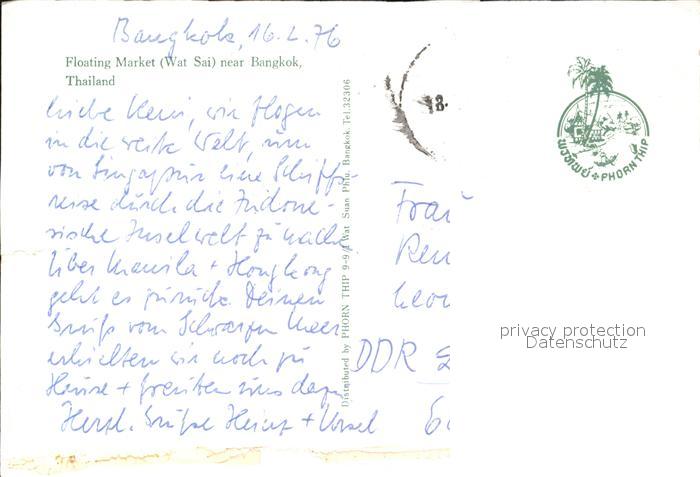 Bangkok, 16.2.76
Floating Market (Wat Sai) near Bangkok,
Thailand
Liebe Reni, wir flogen
in die weite Welt, um
von Singapur eine Schiffs-
reise durch die Indone-
sische Inselwelt zu machen
Über Manila + Hongkong
geht es zurück. Deinen
Gruß vom Schwarzen Meer
erhielten wir noch zu
Hause + freuten uns dazu
Herzl. Grüße Heinz + Ursel
Distributed by PHORN THIP 9-9/1 Wat Suan Phlu, Bangkok. Tel.32306
18.
พรทิพย์ PHORN THIP
Frau
DDR
privacy protection
Datenschutz